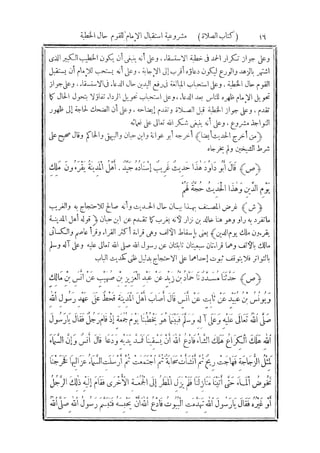 ١٦ (كتاب الصلاة) مشروعية استقبال الإمام القوم حال الخطبة
وعلى جواز تكرار الحمد فى خطبة الاستسقاء. وعلى أنه ينبغى أن يكون الخطيب الكبير الذى
اشتهر بالزهد والورع ليكون دعاؤه أقرب إلى الإجابة. وعلى أنه يستحب للإمام أن يستقبل
القوم حال الخطبة. وعلى استحباب المبالغة فى رفع اليدين حال الدعاء. فى الاستسقاء. وعلى جواز
تحويل الإمام ظهره للناس بعد الدعاء. وعلى استحباب تحويل الرداء تفاؤلا بتحول الحال كما
تقدم. وعلى جواز الخطبة قبل الصلاة وتقدم إيضاحه. وعلى أن الضحك لحاجة إلى ظهور
النواجذ مشروع. وعلى أنه ينبغى شكر الله تعالى على نعمائه
﴿من أخرج الحديث أيضا﴾ أخرجه أبو عوانة وابن حبان والبيهقى والحاكم وقال صحيح على
شرط الشيخين ولم يخرجاه
﴿ص﴾ قَالَ أَبُو دَاوُدَ هَذَا حَدِيثٌ غَرِيبٌ إِسْنَادُهُ جَيِّدٌ. أَهْلُ الْمَدِينَةِ يَقْرَءُونَ مَلِكِ
يَوْمِ الدِّينِ وَهَذَا الْحَدِيثُ حُجَّةٌ لَهُمْ
﴿ش﴾ غرض المصنف بهذا بيان حال الحديث وأنه صالح للاحتجاج به والغريب
ما تفرد به راو وهو هنا خالد بن نزار لأنه يغرب كما تقدم عن ابن حبان ﴿قوله أهل المدينة
يقرءون ملك يوم الدين﴾ يعنى بإسقاط الألف وهى قراءة أكثر القراء وقرأ عاصم والكسائى
مالك بالألف وهما قراءتان سبعيتان ثابتتان عن رسول الله صلى الله تعالى عليه وعلى آله وسلم
بالتواتر فلا يتوقف ثبوت إحداهما على الاحتجاج بدليل ظنى كحديث الباب
﴿ص﴾ حَدَّثَنَا مُسَدَّدٌ نَا حَمَّادُ بْنُ زَيْدٍ عَنْ عَبْدِ الْعَزِيزِ بْنِ صُهَيْبٍ عَنْ أَنَسِ بْنِ مَالِكٍ
وَيُونُسَ بْنِ عُبَيْدٍ عَنْ ثَابِتٍ عَنْ أَنَسٍ قَالَ أَصَابَ أَهْلَ الْمَدِينَةِ قَحْطٌ عَلَى عَهْدِ رَسُولِ اللهِ
صَلَّى اللهُ تَعَالَى عَلَيْهِ وَعَلَى آلِهِ وَسَلَّمَ فَبَيْنَمَا هُوَ يَخْطُبُنَا يَوْمَ جُمُعَةٍ إِذْ قَامَ رَجُلٌ فَقَالَ يَارَسُولَ
اللهِ هَلَكَ الْكُرَاعُ هَلَكَ الشَّاءُ فَادْعُ اللهَ أَنْ يَسْقِيَنَا فَمَدَّ يَدَيْهِ وَدَعَا قَالَ أَنَسٌ وَإِنَّ السَّمَاءَ
لَمِثْلُ الزُّجَاجَةِ فَهَاجَتْ رِيحٌ ثُمَّ أَنْشَأَتْ سَحَابَةً ثُمَّ اجْتَمَعَتْ ثُمَّ أَرْسَلَتِ السَّمَاءُ عَزَالِيَهَا فَخَرَجْنَا
نَخُوضُ الْمَاءَ حَتَّى أَتَيْنَا مَنَازِلَنَا فَلَمْ يَزَلِ الْمَطَرُ إِلَى الْجُمُعَةِ الْأُخْرَى فَقَامَ إِلَيْهِ ذَلِكَ الرَّجُلُ
أَوْ غَيْرُهُ فَقَالَ يَارَسُولَ اللهِ تَهَدَّمَتِ الْبُيُوتُ فَادْعُ اللهَ أَنْ يَحْبِسَهُ فَتَبَسَّمَ رَسُولُ اللهِ صَلَّى اللهُ